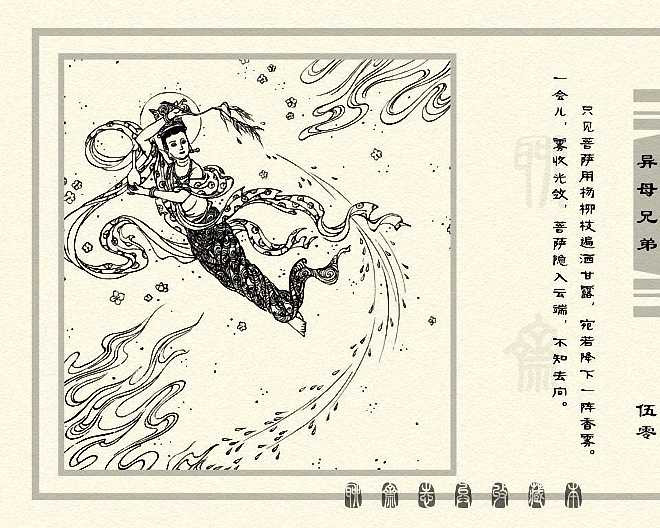 异母兄弟
伍零
只见菩萨用杨柳枝遍洒甘露，宛若降下一阵香雾。
一会儿，雾收光敛，菩萨隐入云端，不知去向。